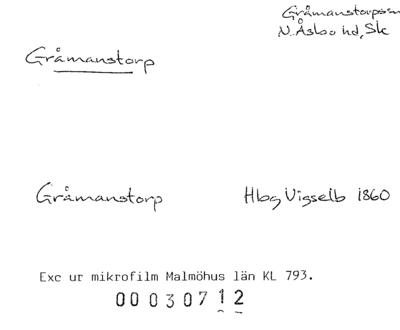 Gråmanstorpssn
N. Åsbo hd, Sk
Gråmanstorp
Gråmanstorp Hbg Vigselb 1860
Exc ur mikrofilm Malmöhus län KL 793.
00030712